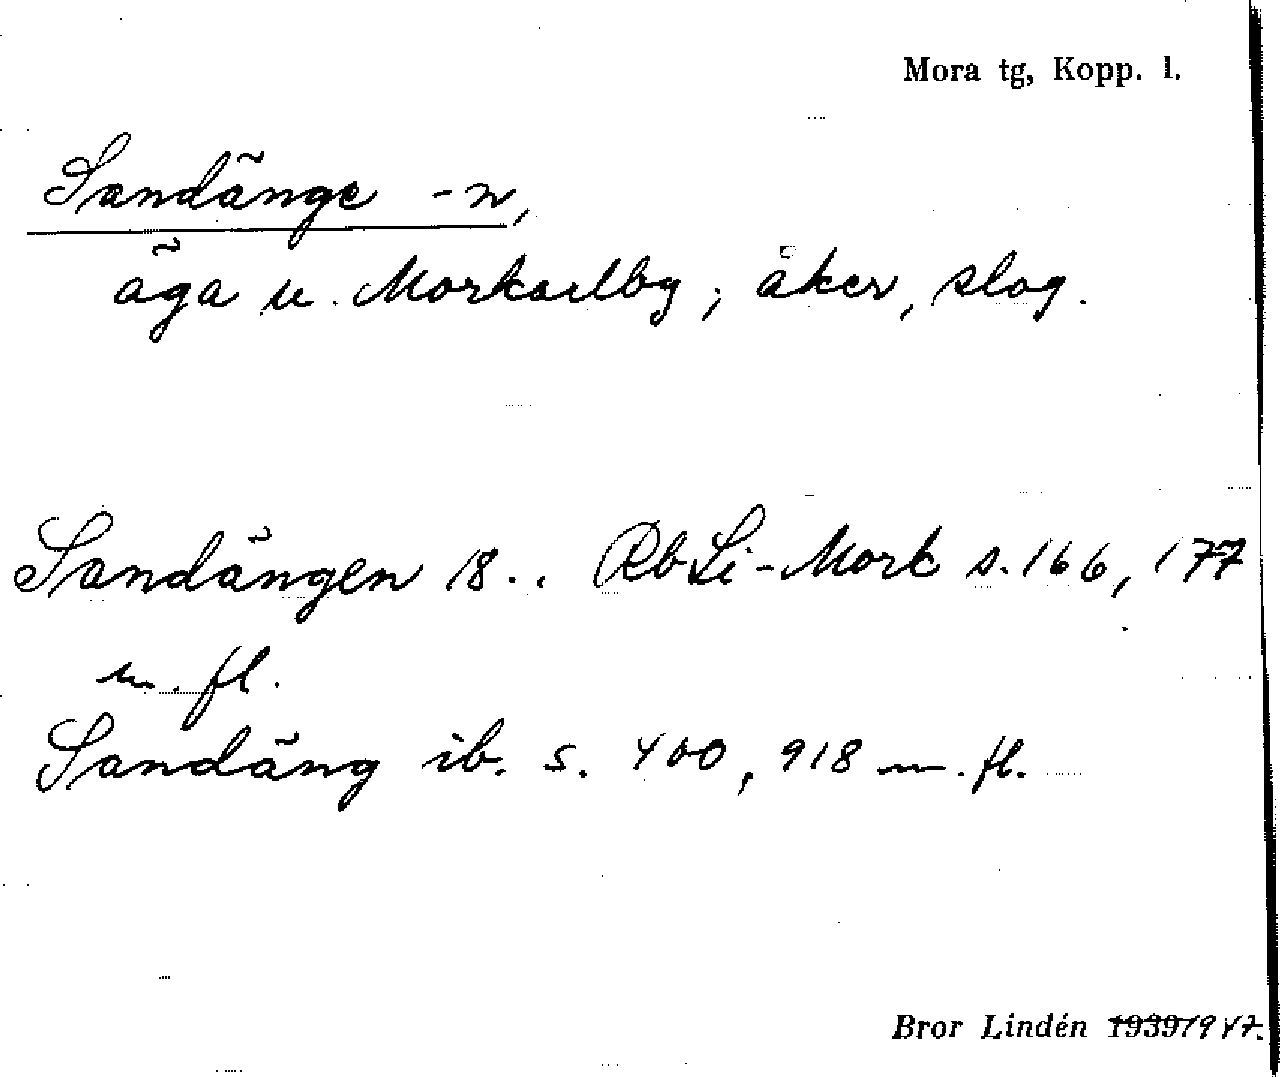 Mora tg, Kopp. l.
Sandänge -n,
äga u. Morkarlby; åker, slog.
Sandängen 18.. RbLi-Mork s. 166, 177
m. fl.
Sandäng ib. s. 400, 918 m. fl.
Bror Lindén 1939 1947.